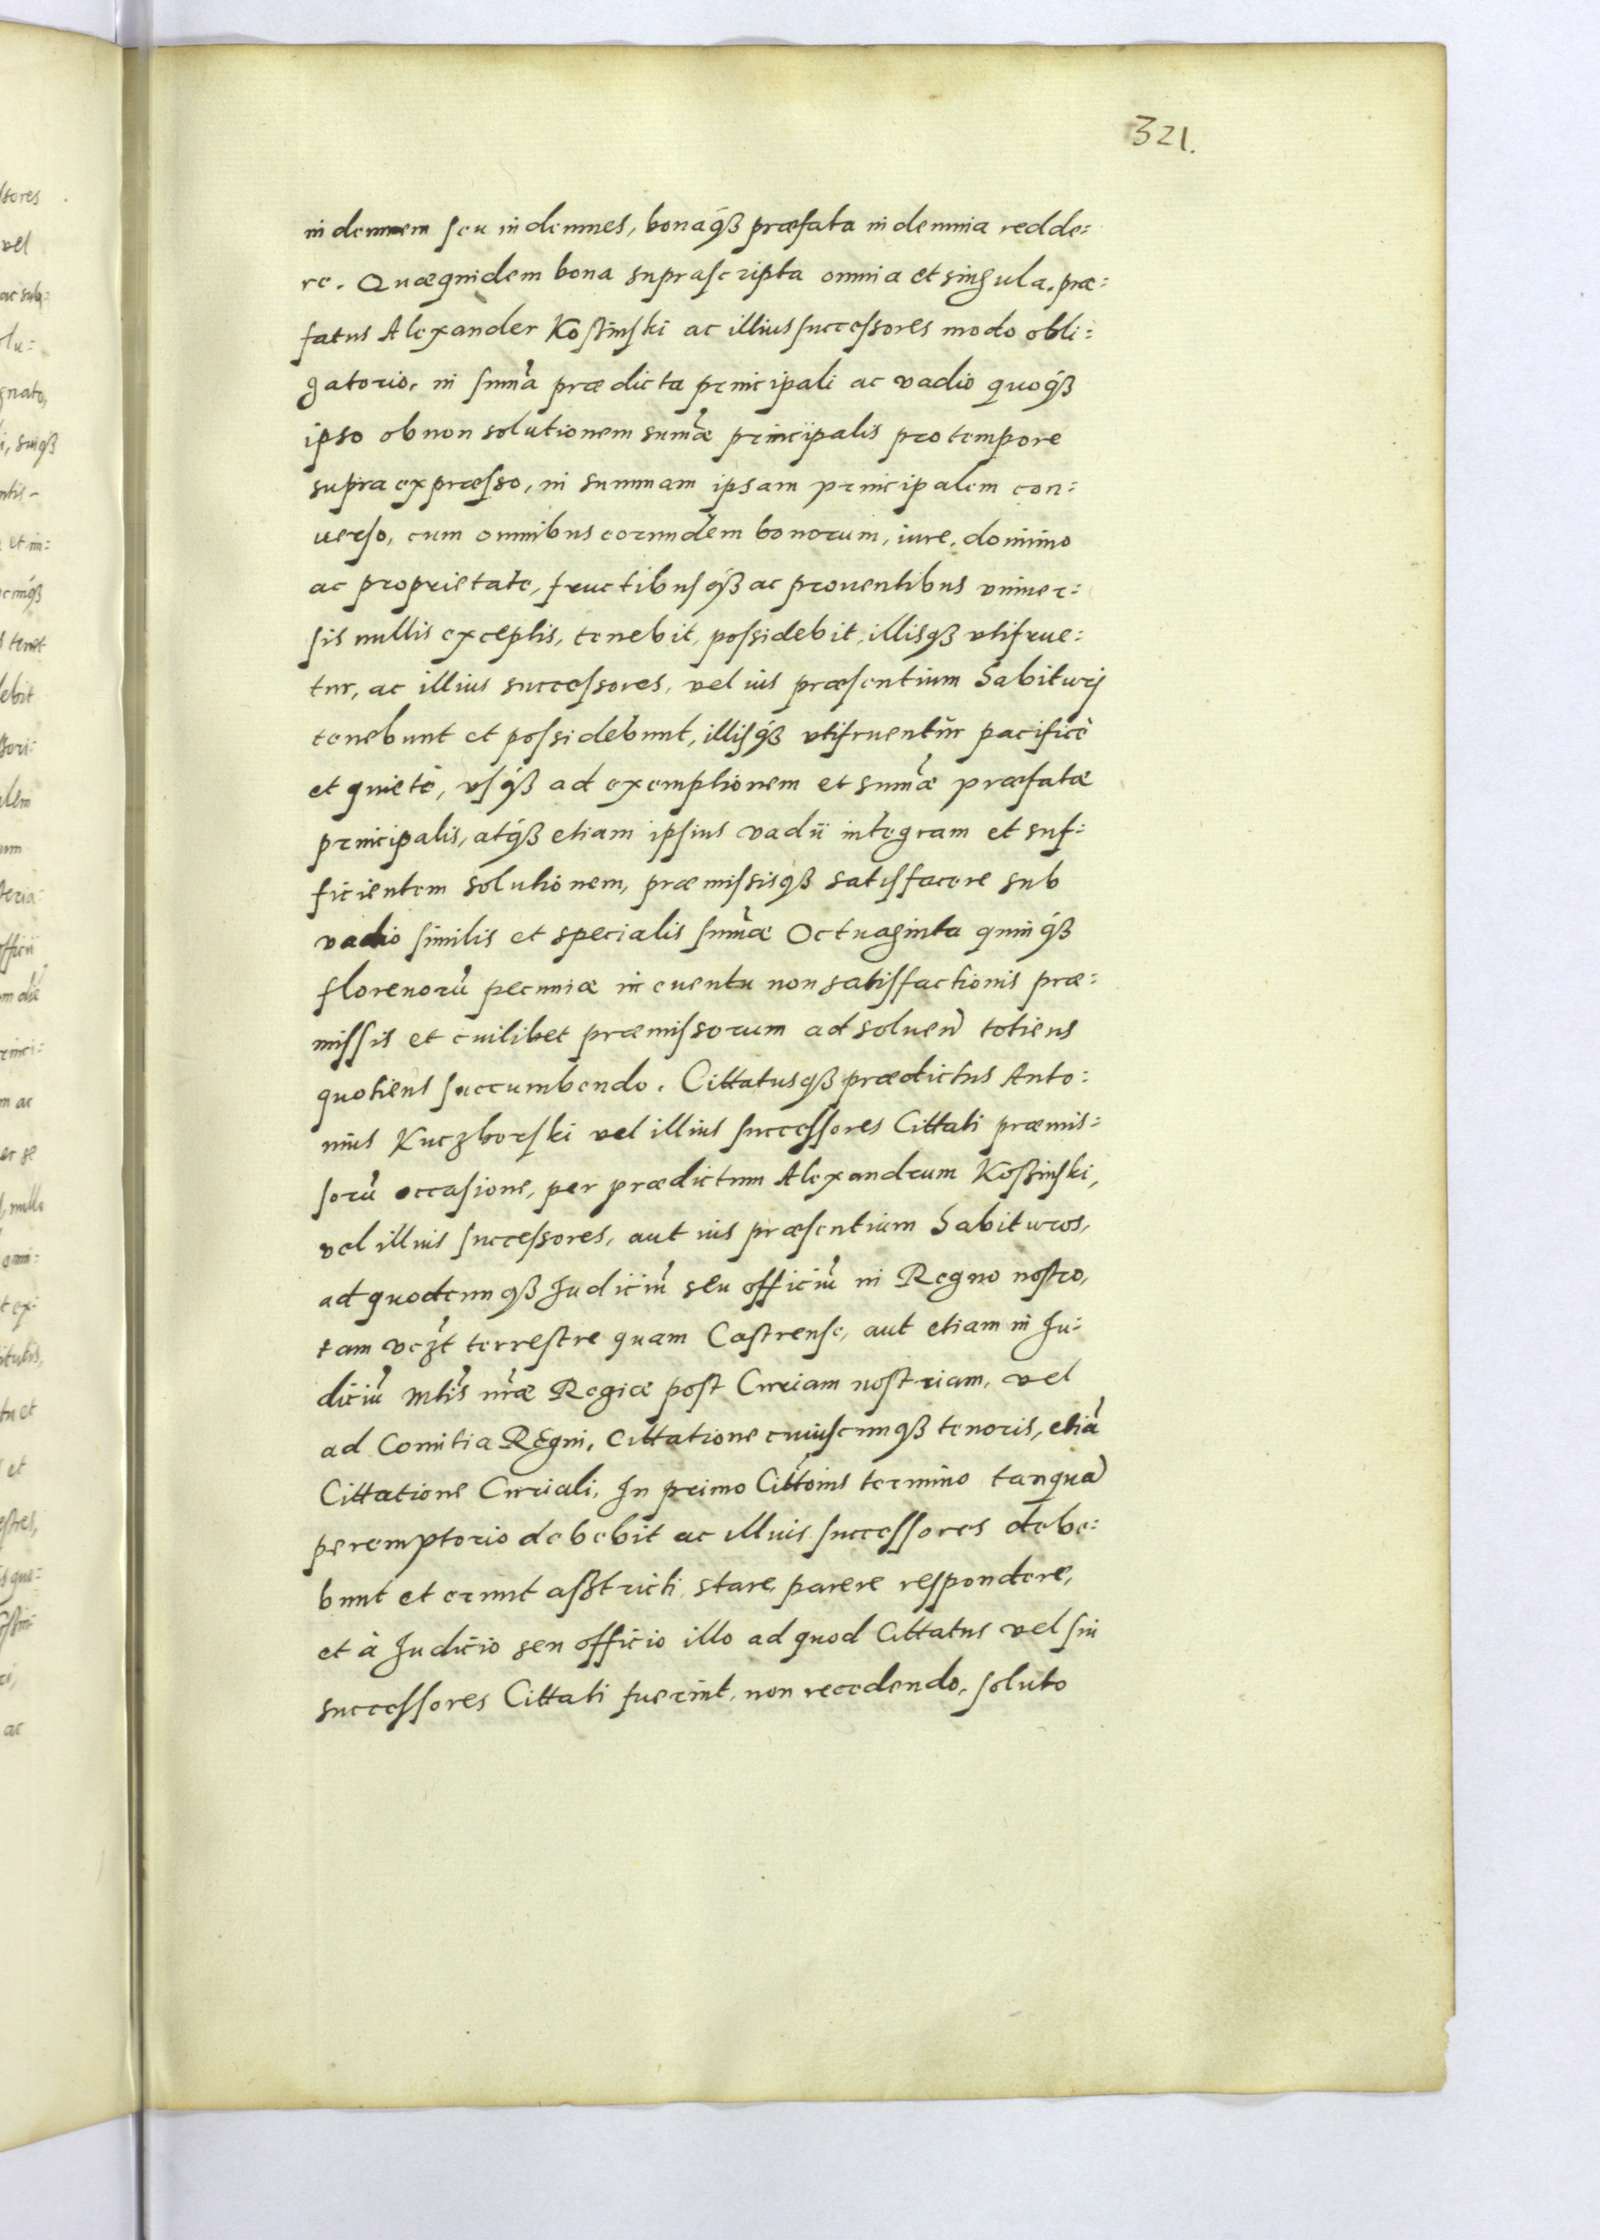 321.
indemnem seu indemnes, bonaq́ꝫ præfata indemnia redde:
re. Quæquidem bona suprascripta omnia et singula, præ:
fatus Alexander Kossinski ac illius successores modo obli:
gatorio, in sum̃a prædicta principali ac vadio quoq́ꝫ
ipso ob non solutionem sum̃æ principalis pro tempore
supra expræsso, in summam ipsam principalem con:
uerso, cum omnibus eorundem bonorum, iure, dominio
ac proprietate, fructibusq́ꝫ ac prouentibus vniuer:
sis nullis exceptis, tenebit, possidebit, illisqꝫ vtifrue:
tur, ac illius successores, vel ius præsentium habiturj
tenebunt et possidebunt, illisq́ꝫ vtifruentur pacificè
et quietè, vsq́ꝫ ad exemptionem et sum̃æ præfatæ
principalis, atq́ꝫ etiam ipsius vadii integram et suf:
ficientem solutionem, præmissisqꝫ satisfacere sub
vadio similis et specialis sum̃æ Octuaginta quinq́ꝫ
florenorũ pecuniæ in euentu non satisfactionis præ:
missis et cuilibet præmissorum ad soluen̄ totiens
quotiens succumbendo. Cittatusqꝫ prædictus Anto:
nius Kuczborski vel illius successores Cittati præmis:
sorũ occasione, per prædictum Alexandrum Kossinski,
vel illius successores, aut ius præsentium habituros,
ad quodcunqꝫ Judiciũ seu officiũ in Regno nostro,
tam vczt̃ terrestre quam Castrense, aut etiam in Ju:
diciũ Mtis̃ nr̃æ Regiæ post Curiam nostriam, vel
ad Comitia Regni, Cittatione cuiuscunqꝫ tenoris, etiã
Cittatione Curiali, In primo Citt̃onis termino tanquã
peremptorio debebit ac illius successores debe:
bunt et erunt asstricti stare, parere respondere,
et à Judicio seu officio illo ad quod Cittatus vel sui
successores Cittati fuerint, non recedendo, soluto